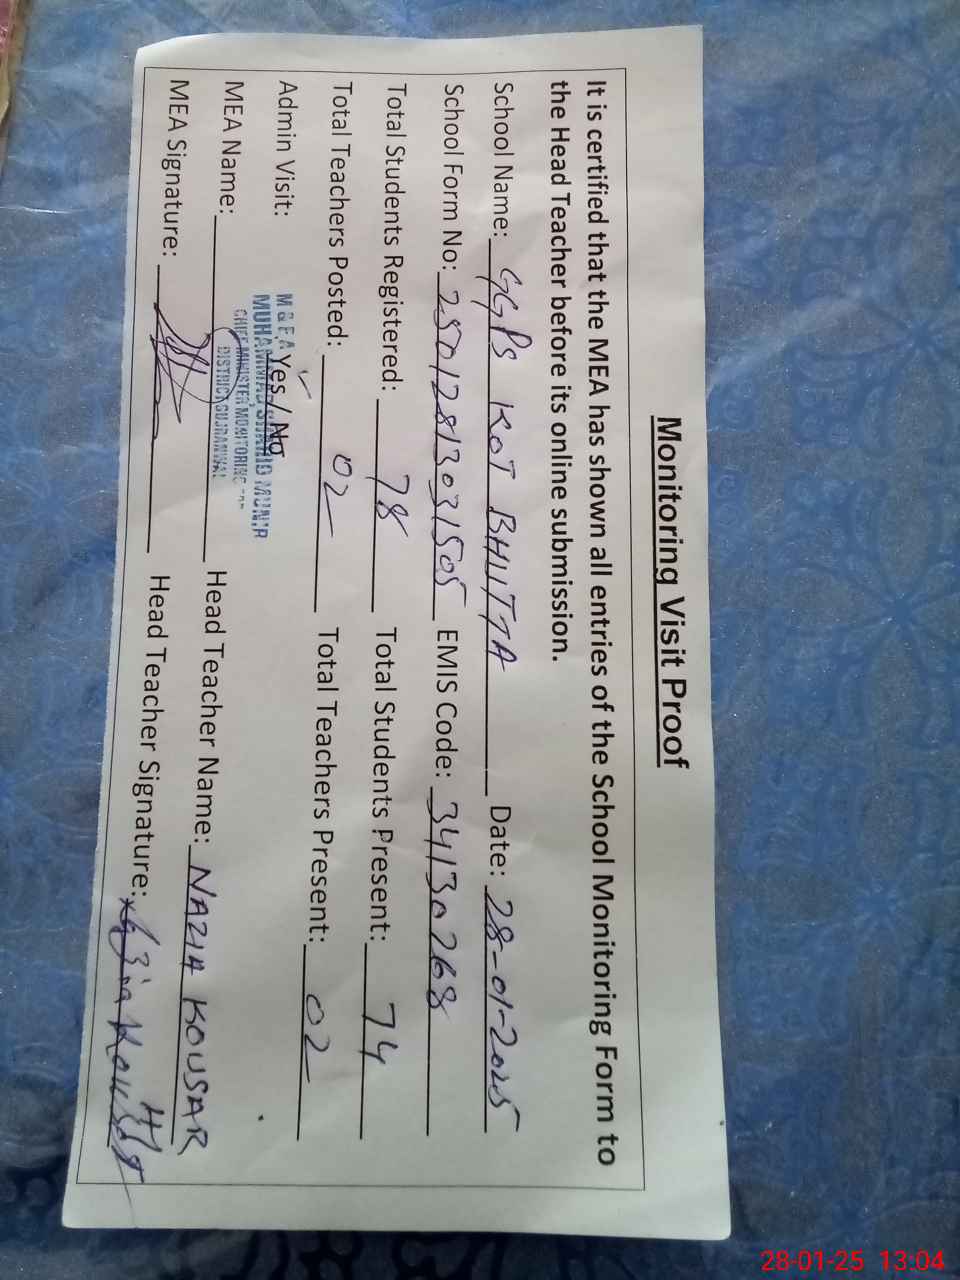 Monitoring Visit Proof
It is certified that the MEA has shown all entries of the School Monitoring Form to
the Head Teacher before its online submission.
School Name: GGPS KOT BHUTTA Date: 28-01-2025
School Form No: 25012813031505 EMIS Code: 34130268
Total Students Registered: 78 Total Students Present: 74
Total Teachers Posted: 02 Total Teachers Present: 02
Admin Visit: Yes / No
M & E A
MUHAMMAD SHAHID MUNIR
CHIEF MINISTER MONITORING
DISTRICT GUJRANWALA
MEA Name: Head Teacher Name: NAZIA KOUSAR
MEA Signature: Head Teacher Signature: Nazia Kousar
28-01-25 13:04